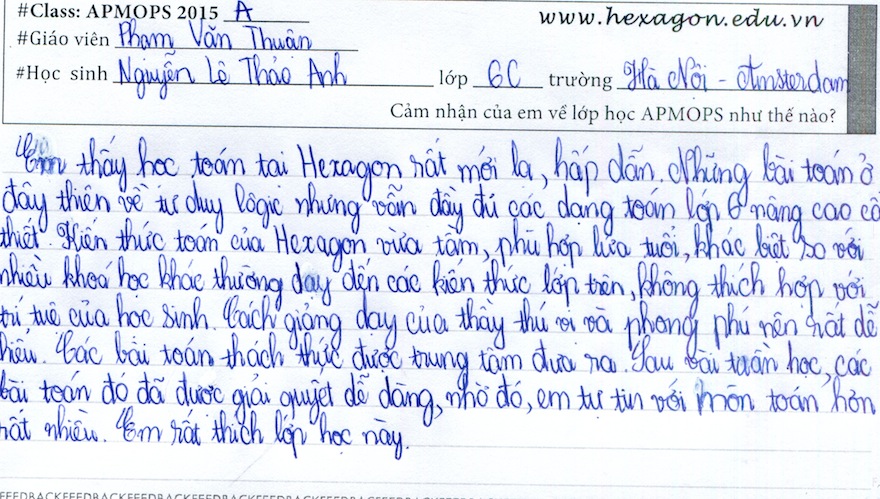 #Class: APMOPS 2015 A
www.hexagon.edu.vn
#Giáo viên Phạm Văn Thuận
#Học sinh Nguyễn Lê Thảo Anh lớp 6C trường Hà Nội - Amsterdam
Cảm nhận của em về lớp học APMOPS như thế nào?
Em thấy học toán tại Hexagon rất mới lạ, hấp dẫn. Những bài toán ở
đây thiên về tư duy lôgic nhưng vẫn đầy đủ các dạng toán lớp 6 nâng cao cô
thiết. Kiến thức toán của Hexagon vừa tầm, phù hợp lứa tuổi, khác biệt so với
nhiều khoá học khác thường dạy đến các kiến thức lớp trên, không thích hợp với
trí tuệ của học sinh. Cách giảng dạy của thầy thú vị và phong phú nên rất dễ
hiểu. Các bài toán thách thức được trung tâm đưa ra. Sau vài tuần học, các
bài toán đó đã được giải quyết dễ dàng, nhờ đó, em tự tin với môn toán hơn
rất nhiều. Em rất thích lớp học này.
FEEDBACKFEEDBACKFEEDBACKFEEDBACKFEEDBACKFEEDBACKFEEDBACKFEEDBACK